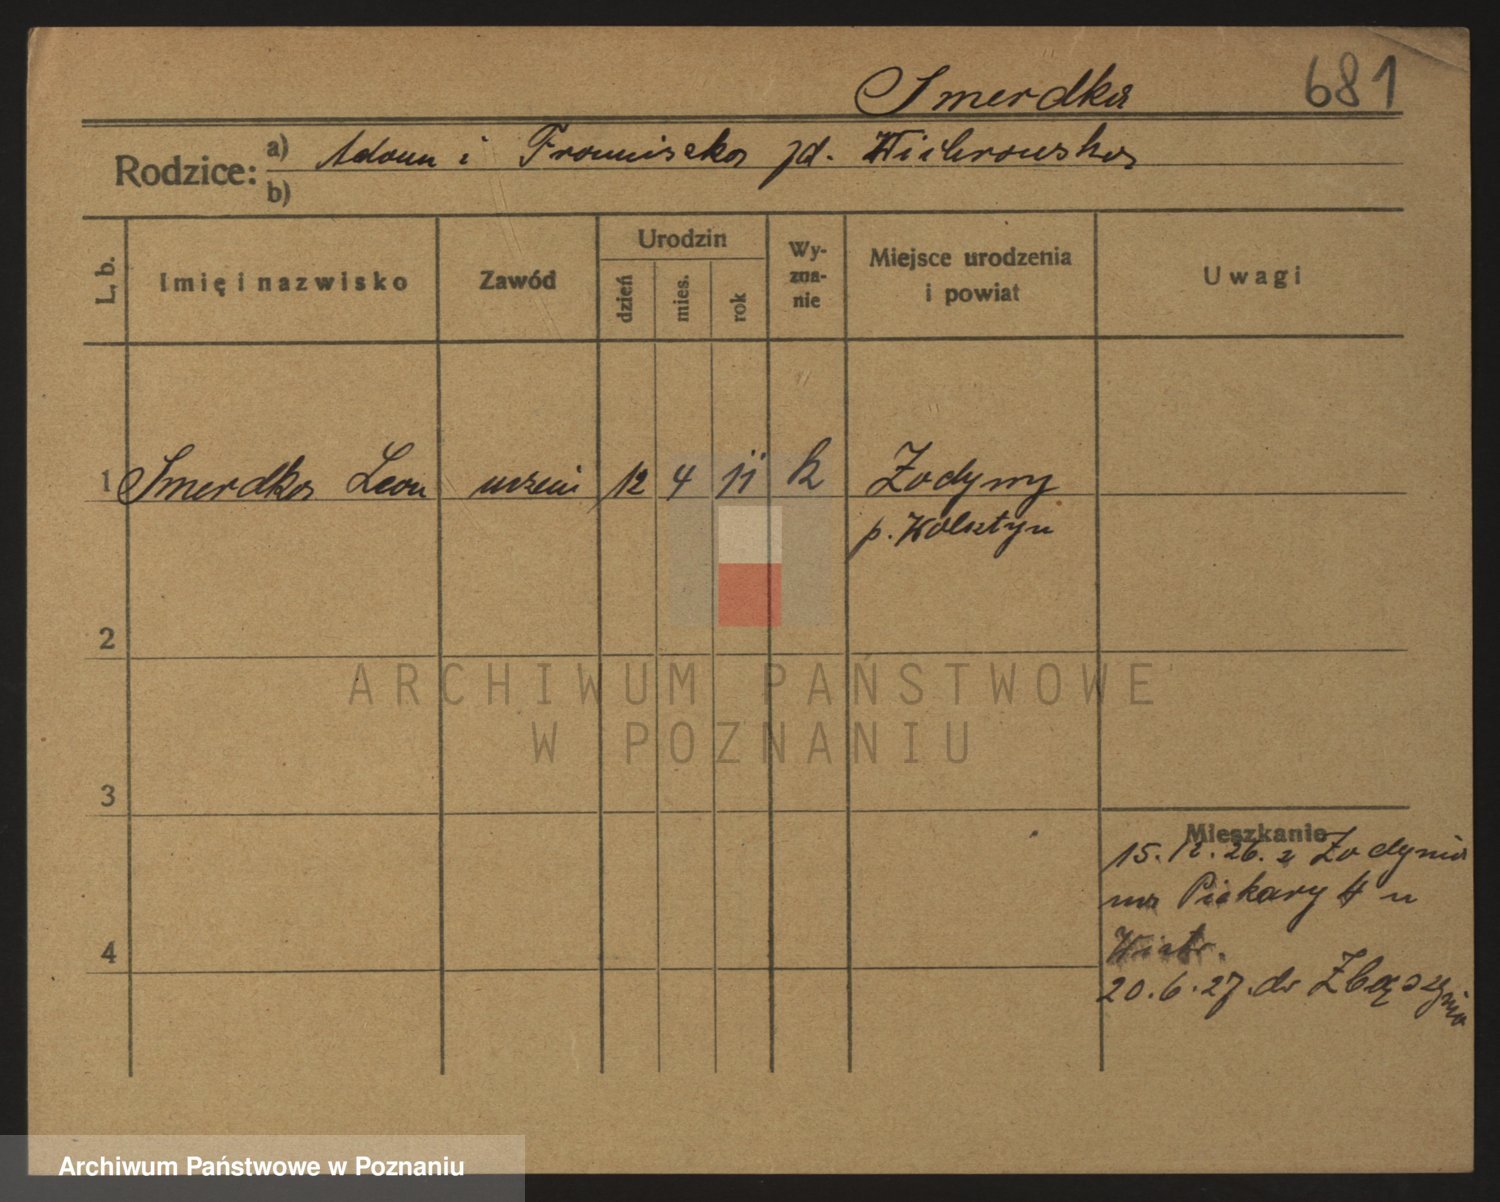 Smerdka 681
Rodzice: a) Adam i Franciszka zd. Wichrowska
b)
L. b. Imię i nazwisko Zawód Urodzin Wyznanie Miejsce urodzenia i powiat Uwagi
dzień mies. rok
1 Smerdka Leon uczeń 12 4 11 k Żodymy
p. Wolsztyn
2
3
4
Mieszkanie
15.12.26. z Żodynia
na Piekary 4 u
Wiatr.
20.6.27. do Zbąszynia
ARCHIWUM PAŃSTWOWE
W POZNANIU
Archiwum Państwowe w Poznaniu